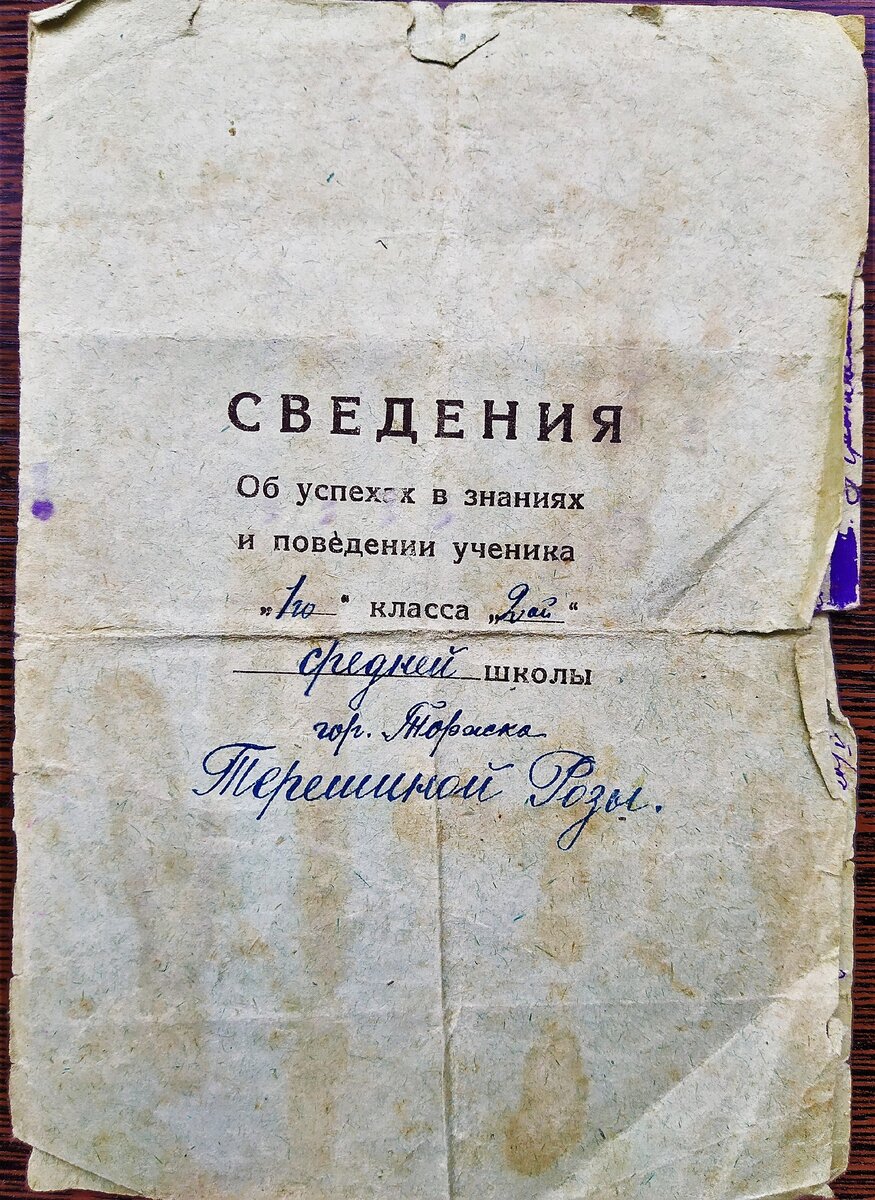 СВЕДЕНИЯ
Об успехах в знаниях
и поведении ученика
„1го“ класса „2ой“
средней школы
гор.
Терешиной Розы.